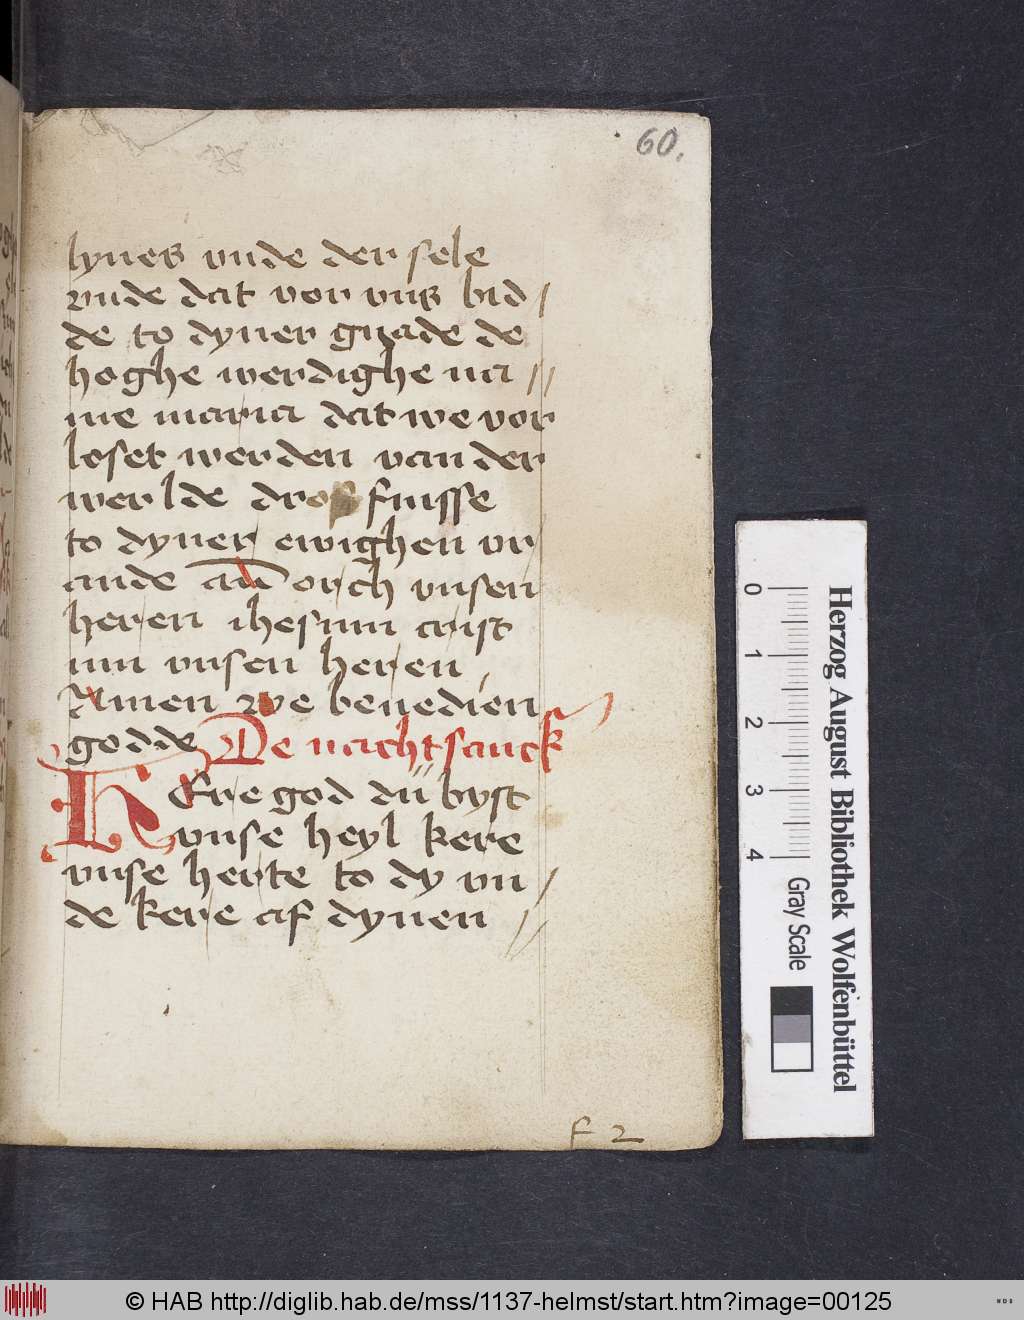 60.
lyues vnde der sele
vnde dat vor vns bid
de to dyner gnade de
hoghe werdighe na
me maria dat we vor
loset werden van der
werlde drofnisse
to dyner ewighen vr
aude am̄ dorch vnsen
heren ihesum crist
um vnsen heren
Amen we benedien
godde De nachtsanck
HEre god du byst
vnse heyl kere
vnse herte to dy vn
de kere af dynen
f 2
0
1
2
3
4
Gray Scale
Herzog August Bibliothek Wolfenbüttel
© HAB http://diglib.hab.de/mss/1137-helmst/start.htm?image=00125